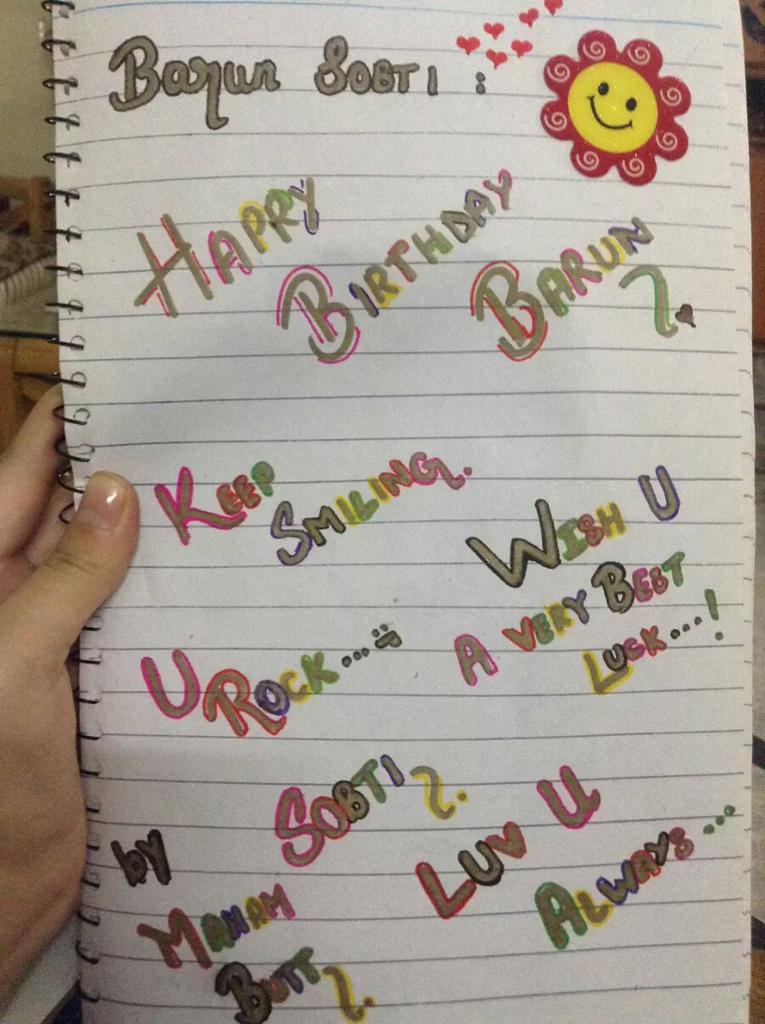 Barun SOBTI :
HAPPY BIRTHDAY BARUN
KEEP SMILING.
WISH U
A VERY BEST LUCK...!
U ROCK...
SOBTI
LUV U ALWAYS...
by MAHAM BUTT